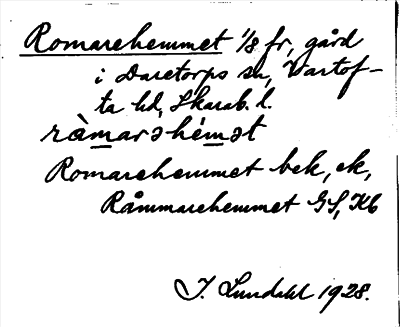 Romarehemmet 1/8 fr, gård
i Daretorps sn, Vartof-
ta hd, Skarab. l.
ràmarəhémət
Romarehemmet bek, ek,
Råmmarehemmet GS, Kb
J. Lundahl 1928.